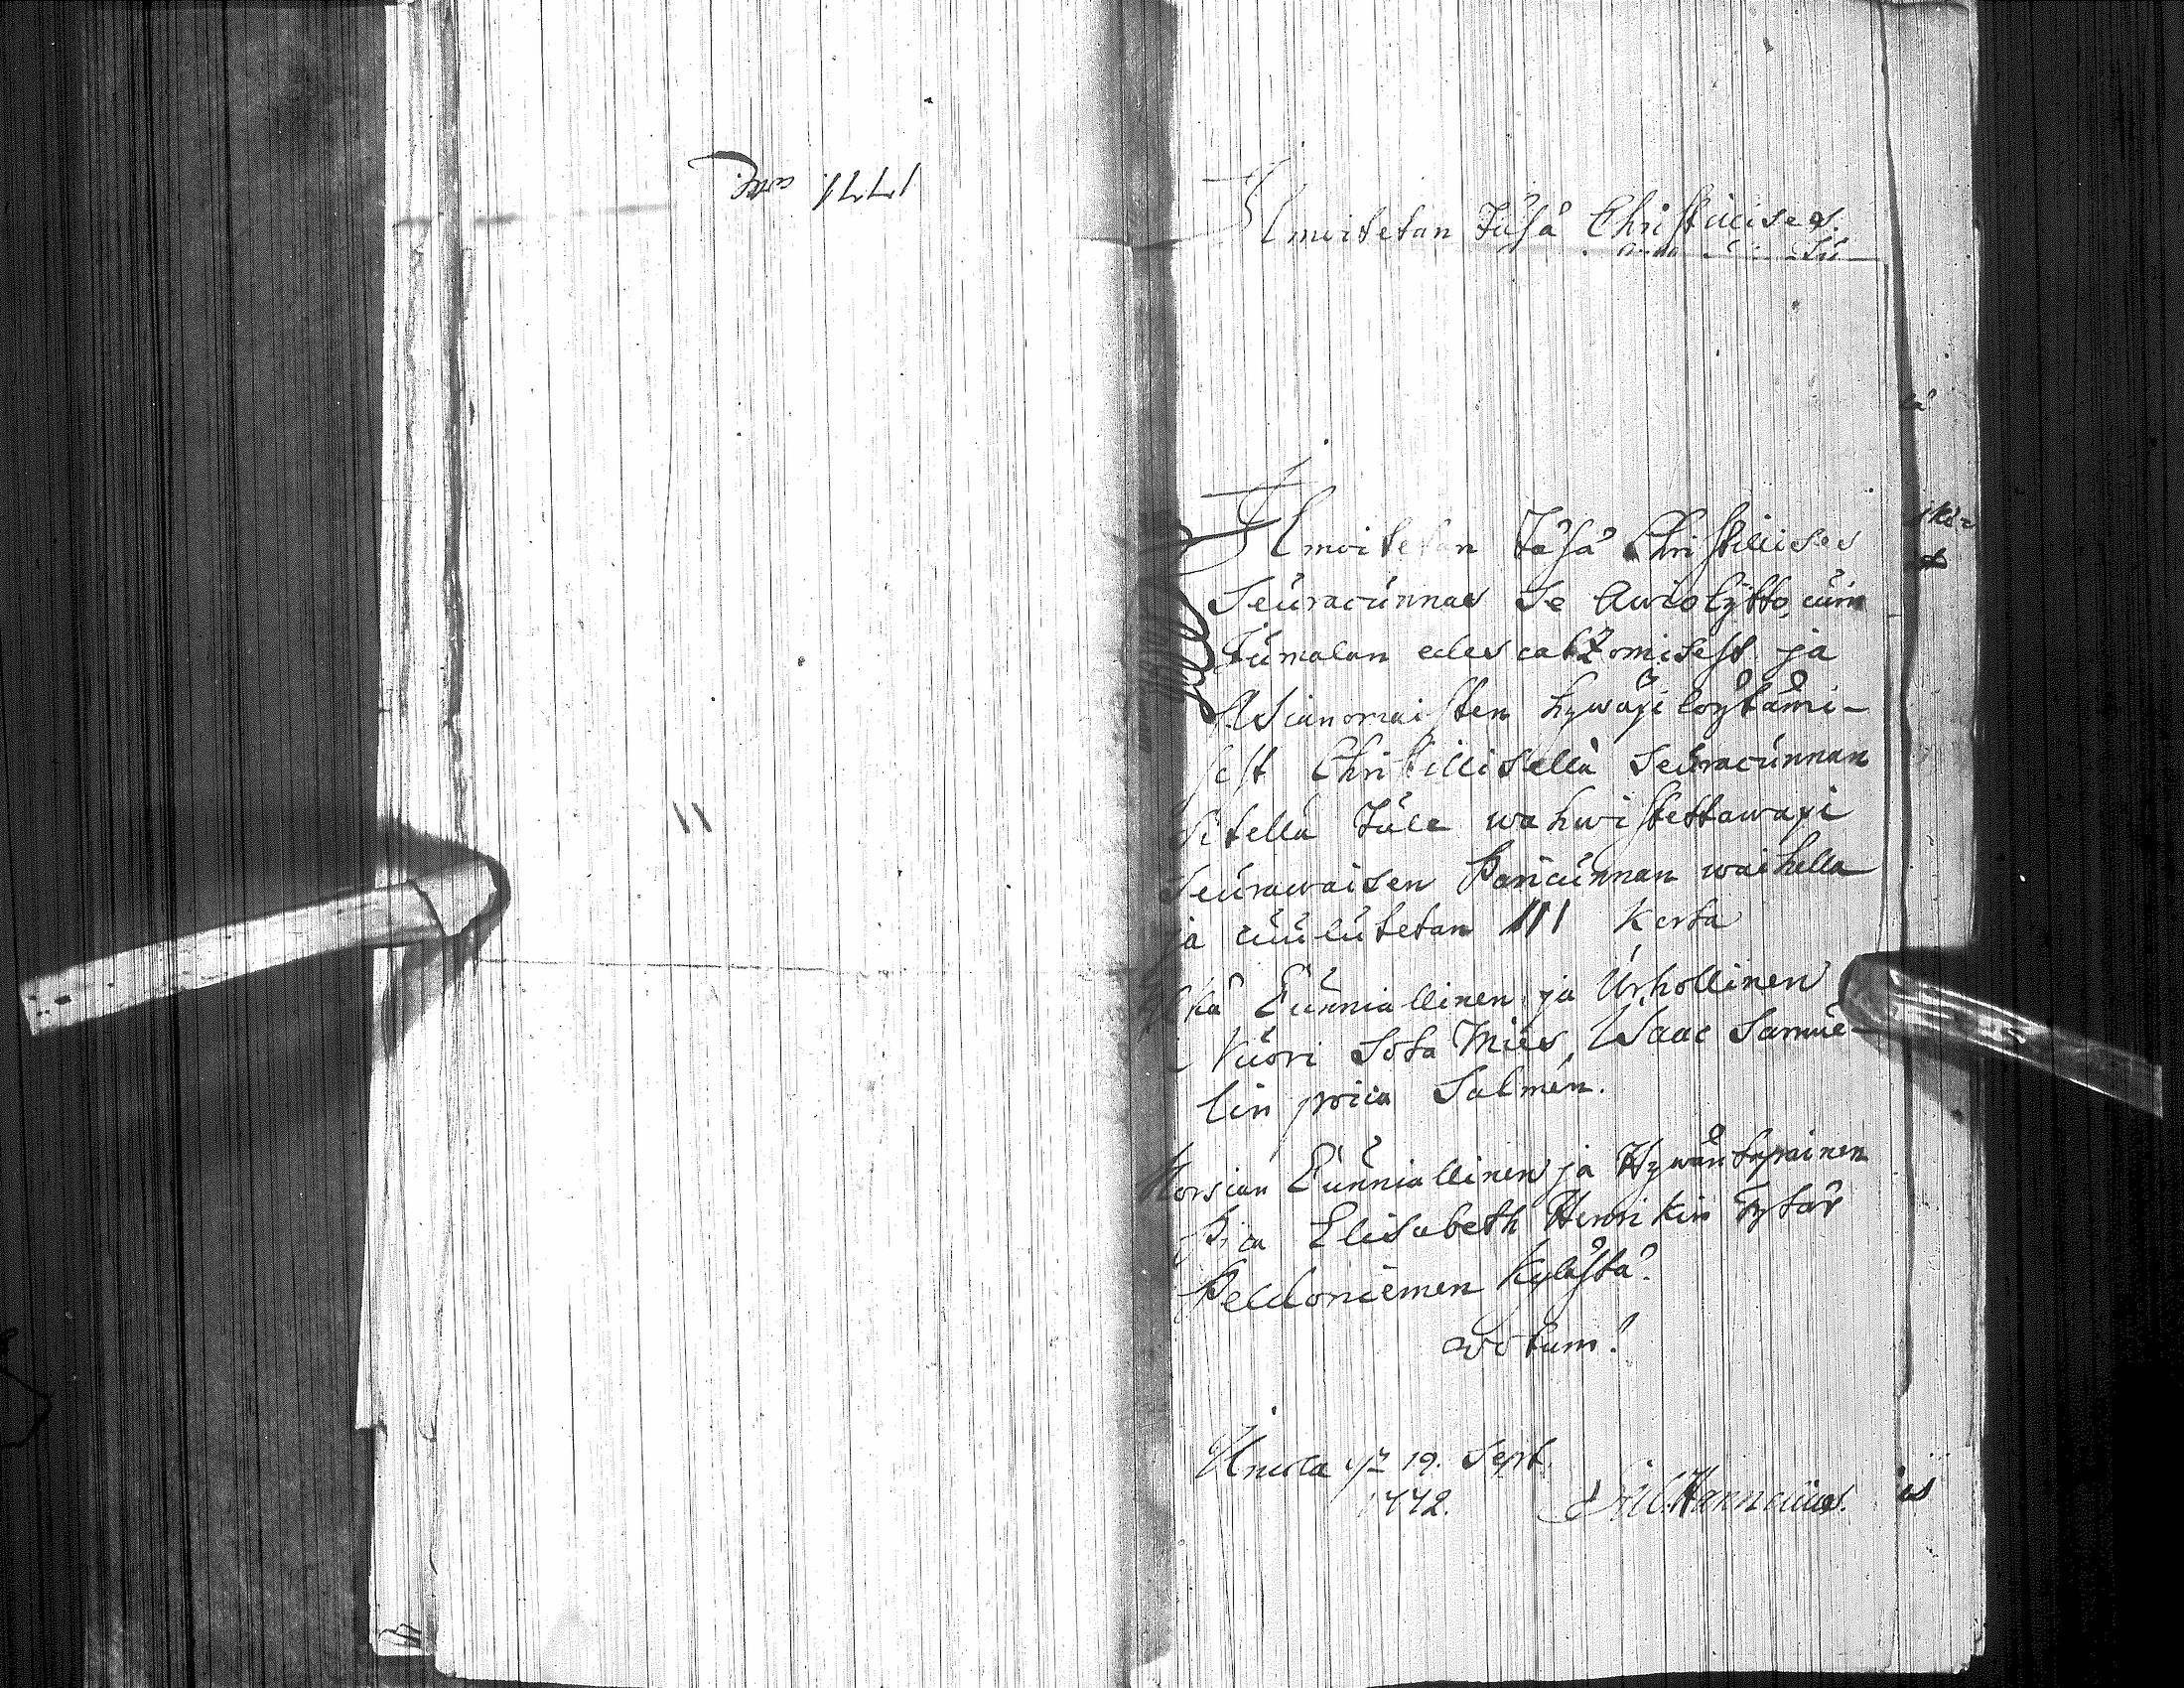 1771.
Ilmoitetan Täsä Christillises.
Ilmoitetan Täsä Christillises
Seuracunnas se Awiolijtto, cuin
Jumalan edescatzomisest ja
Asianomaisten hywäxi löytämi-
sest Christillisellä Seuracunnan
sitellä Tule wahwistettawaxi
seurawaisen Paricunnan waihella
ja cuulutetan III Kerta
Cunniallinen ja Urhollinen
Nuori Sota Mies, Isaac Samue-
lin poica Salmén.
Morsian Cunniallinen ja Hywäntapainen
Pica Elisabeth Henrikin Tytär
Peldoniemen Kylästä.
votum!
19. Sept.
1772.